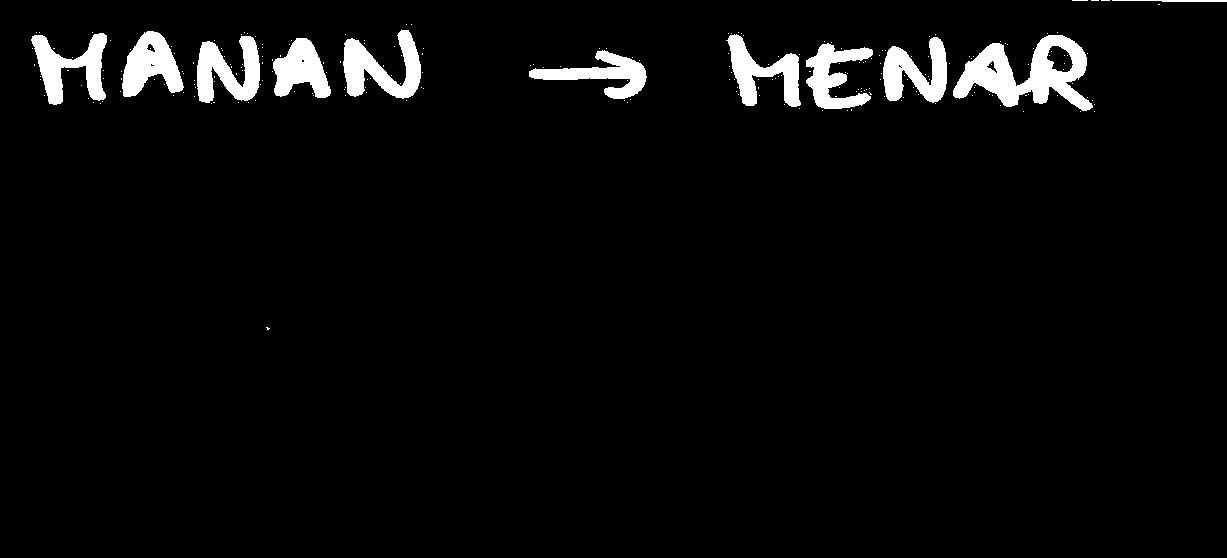 MANAN → MENAR